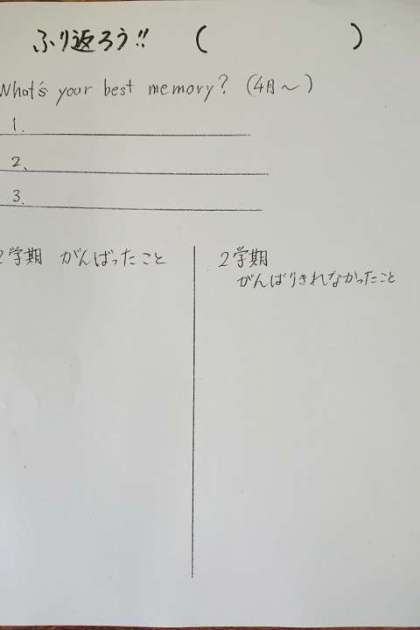 ふり返ろう!! (　　　　　)
What's your best memory? (4月〜)
1.
2.
3.
2学期 がんばったこと
2学期
がんばりきれなかったこと